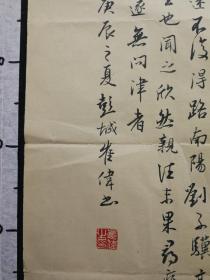 迷不復得路南陽劉子驥高
士也聞之欣然親往未果尋病
遂無問津者
庚辰之夏彭城崔偉书